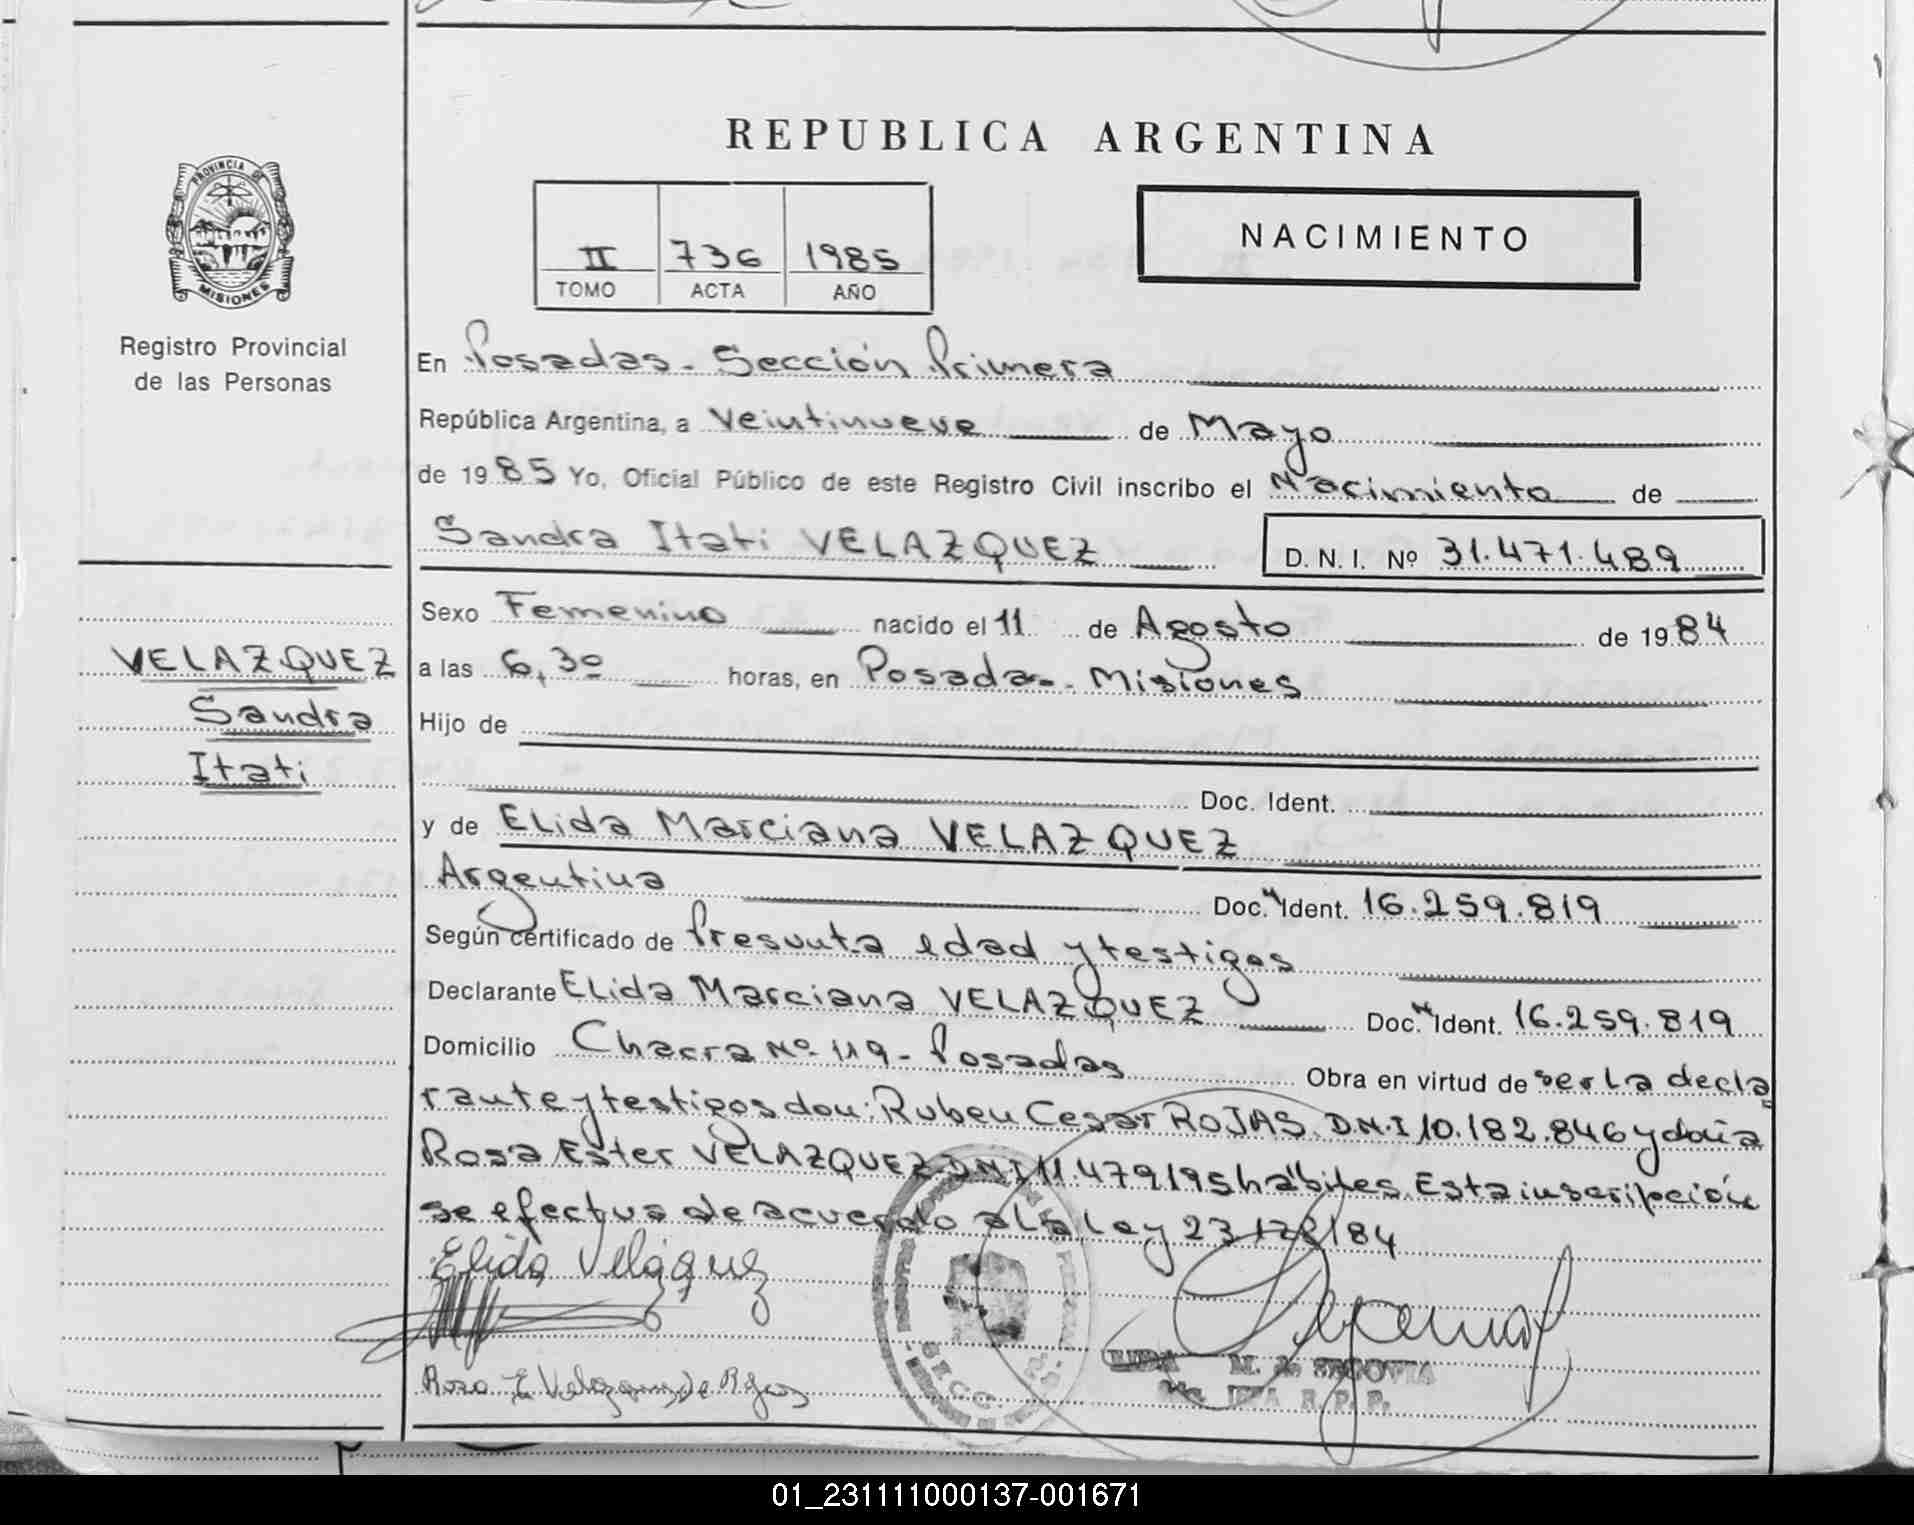 REPUBLICA ARGENTINA
PROVINCIA DE
MISIONES
Registro Provincial
de las Personas
II 736 1985
TOMO ACTA AÑO
NACIMIENTO
En Posadas - Sección Primera
República Argentina, a Veintinueve de Mayo
de 1985 Yo, Oficial Público de este Registro Civil inscribo el Nacimiento de
Sandra Itati VELAZQUEZ D. N. I. Nº 31.471.489
Sexo Femenino nacido el 11 de Agosto de 1984
a las 6,30 horas, en Posadas - Misiones
Hijo de
Doc. Ident.
y de Elida Marciana VELAZQUEZ
Argentina Doc. Ident. 16.259.819
Según certificado de Presunta edad y testigos
Declarante Elida Marciana VELAZQUEZ Doc. Ident. 16.259.819
Domicilio Chacra Nº 119 - Posadas Obra en virtud de ser la decla
rante y testigos don: Ruben Cesar ROJAS D.N.I 10.182.846 y doña
Rosa Ester VELAZQUEZ D.N.I 11.479195 hábiles. Esta inscripción
se efectua de acuerdo a la Ley 23.128/84
VELAZQUEZ
Sandra
Itati
Elida Velázquez
Rosa E Velazquez de Rojas
M. de SEGOVIA
R. P. P.
SECC.
01_231111000137-001671